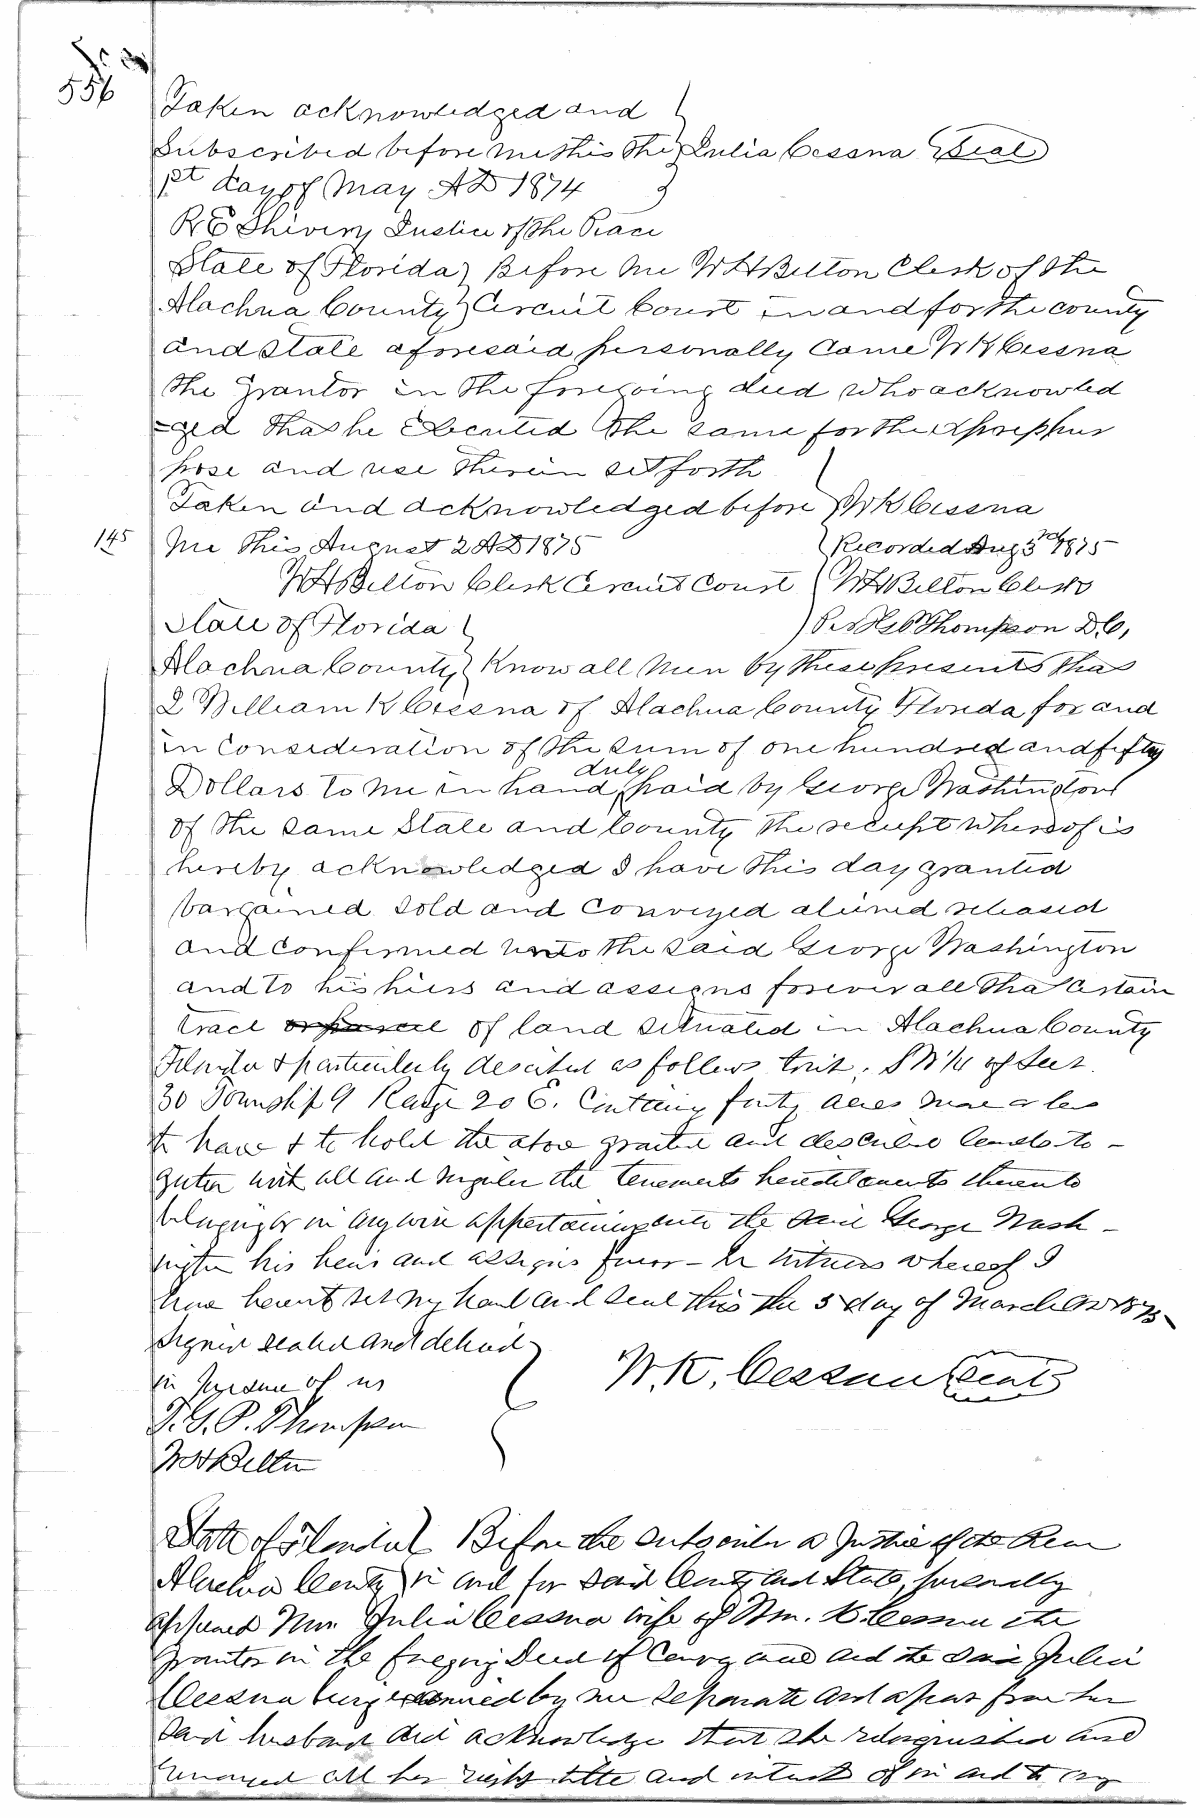 556
Taken acknowledged and
Subscribed before me this the } Julia Cessna (Seal)
1st day of May AD 1874
R E Shivery Justice of the Peace
State of Florida } Before me W H Belton Clerk of the
Alachua County } Circuit Court in and for the county
and state aforesaid personally came W K Cessna
the grantor in the foregoing deed who acknowled
=ged that he Executed the same for the
pose and use therein set forth
Taken and acknowledged before } W K Cessna
145 me this August 2 AD 1875 Recorded Aug 3rd 1875
W H Belton Clerk Circuit Court W H Belton Clerk
State of Florida } Per Thompson D.C.
Alachua County } Know all men by these presents that
I William K Cessna of Alachua County Florida for and
in Consideration of the sum of one hundred and fifty
Dollars to me in hand duly paid by George Washington
of the same State and County the receipt whereof is
hereby acknowledged I have this day granted
bargained sold and conveyed aliened released
and confirmed unto the said George Washington
and to his hiers and assigns forever all that certain
tract or parcel of land situated in Alachua County
Florida & particularly described as follows towit: S W 1/4 of Sect.
30 Township 9 Range 20 E. Containing forty acres more or less
to have & to hold the above granted and described lands to -
gether with all and singular the tenements hereditaments thereunto
belonging or in anywise appertaining unto the said George Wash -
ington his heirs and assigns forever - In witness whereof I
have hereunto set my hand and seal this the 3 day of March AD 1875
Signed sealed and deliverd
in presence of us } W. K. Cessna (Seal)
T. G. P. Thompson
W H Belton
State of Florida } Before the subscriber a Justice of the Peace
Alachua County } in and for said County and State, personally
appeared Mrs. Julia Cessna wife of Wm. K. Cessna the
grantor in the foregoing Deed of Conveyance and the said Julia
Cessna being examined by me separate and apart from her
said husband did acknowledge that she relinquished and
renounced all her right title and interest of in and to any